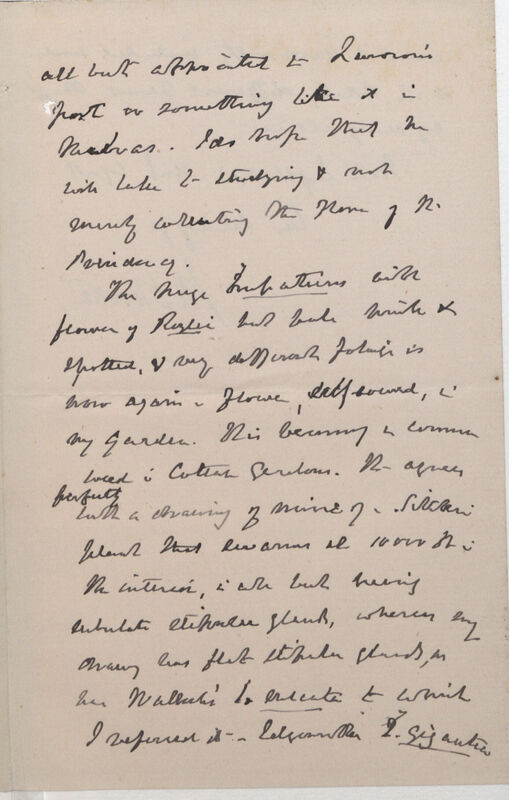 all but appointed to Lawson's
post or something like it in
Madras. I do hope that he
will take to studying & not
merely collecting the Flora of the
Presidency.
The huge Impatiens with
flower of Roylei but pale pink &
spotted, & very different foliage is
now again in flower, self sowed, in
my garden. It is becoming a common
weed in Cottage Gardens. It agrees
perfectly
with a drawing of mine of a Sikkim
plant that swarms at 10000 ft in
the interior, in all but having
subulate stipular glands, whereas my
drawing has flat stipular glands, as
has Wallich's I. sulcata to which
I referred it — Edgeworth's I. gigantea